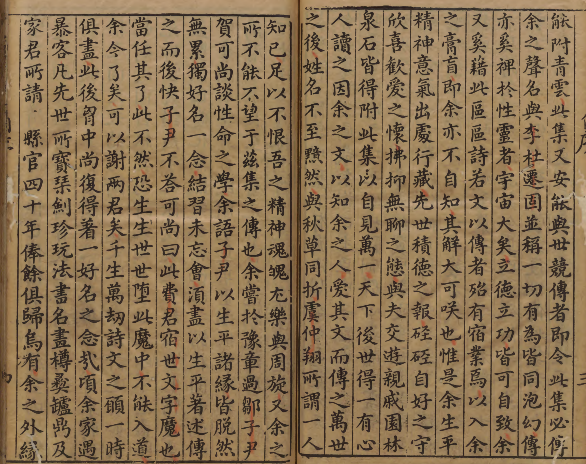 能附青雲此集又安能與世競傳者即令此集必傳
余之聲名與李杜遷固並稱一切有為皆同泡幻傳
亦奚裨於性靈者宇宙大矣立德立功皆可自致余
又奚藉此區區詩若文以傳者殆有宿業焉以入余
之膏肓即余亦不自知其解大可咲也惟是余生平
精神意氣出處行藏先世積德之報硜硜自好之守
欣喜歡愛之懷拂抑無聊之態與夫交遊親戚園林
泉石皆得附此集以自見萬一天下後世得一有心
人讀之因余之文以知余之人愛其文而傳之萬世
之後姓名不至黯然與秋草同折虞仲翔所謂一人
知已足以不恨吾之精神魂魄尤樂與周旋又余之
所不能不望于茲集之傳也余嘗於豫章過鄒子尹
賀可尚談性命之學余語子尹以生平諸緣皆脫然
無累獨好名一念結習未忘會湏盡以生平著述傳
之而後快子尹不答可尚曰此費君宿世文字魔也
當任其了此不然恐生生世世墮此魔中不能入道
余今了矣可以謝兩君矣千生萬劫詩文之願一時
俱盡此後胷中尚復得著一好名之念㢤頃余家遇
暴客凡先世所寶琹劍珍玩法書名畫樽彞鑪鼎及
家君所請縣官四十年俸餘俱歸烏有余之外緣